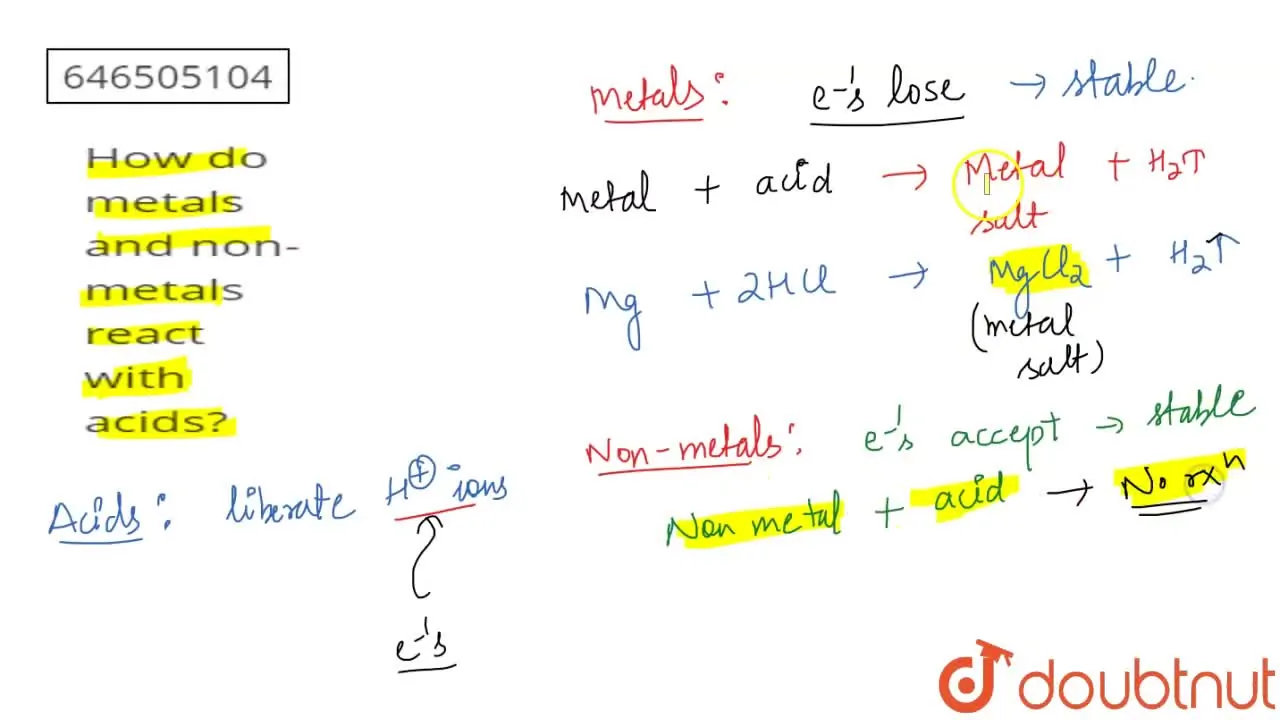 646505104
How do
metals
and non-
metals
react
with
acids?
Acids: liberate H⊕ ions
e⁻'s
Metals: e⁻'s lose → stable.
Metal + acid → Metal salt + H₂↑
Mg + 2HCl → MgCl₂ + H₂↑
(metal
salt)
Non-metals: e⁻'s accept → stable
Non metal + acid → No rxⁿ
doubtnut